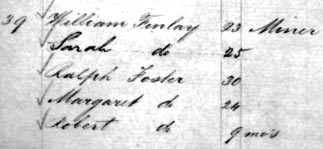 39 William Finlay 23 Miner
Sarah do 25
Ralph Foster 30
Margaret do 24
Robert do 9 mos